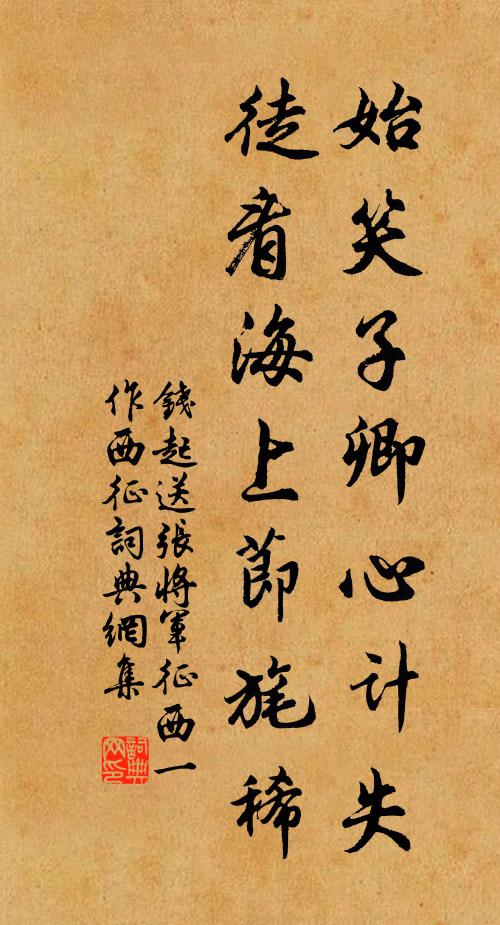 始笑子卿心計失
徒看海上節旄稀
錢起送張將軍征西一
作西征詞典網集
詞典网印